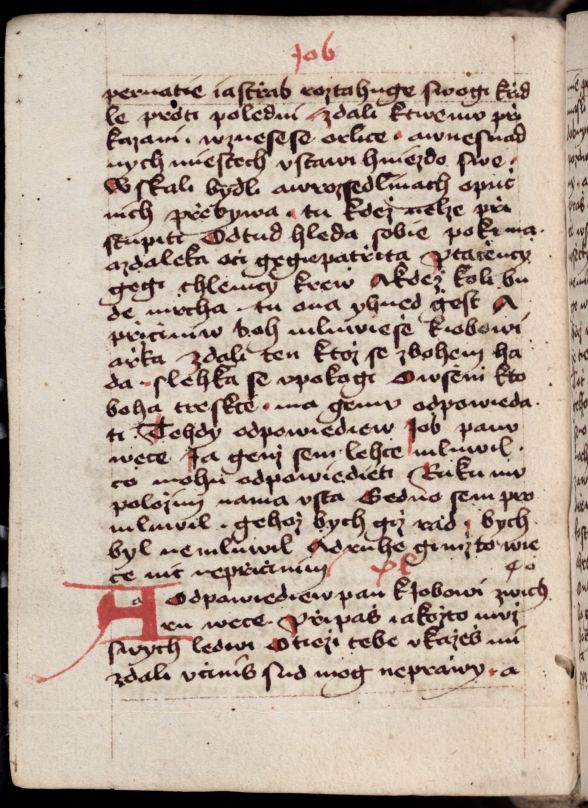 Job
pernatie iastřab roztahuge swogi křid
le proti poledni Zdali k twemu při
kazani . wznese se orlice . a wnesnad
nych miestech vstawi hniezdo swe .
W skali bydli a w rozsedlinach opuč
nich přebywa . tu kdež nelze při
stupiti Odtud hleda sobie pokrma .
a zdaleka oči gegie patřita Ptatency
gegi chlemcy krew A kdež koli bu
de mrcha . tu ona yhned gest A
přičiniw boh mluwieše k iobowi
arka Zdali ten ktoz se z bohem ha
da . slehka se vpokogi Owsem kto
boha treskce . ma gemu odpowieda
ti Tehdy odpowiediew Job panu
wece Ja genz sem lehce mluwil .
co mohu odpowiedieti Ruku mu
polozim na ma vsta Gedno sem pro
mluwil . gehoz bych giz rad . bych
byl nemluwil A druhe gimzto wie
ce nic nepřičinim
A Odpowiediew pan k Jobowi z wich
ru wece . Připaš iakožto muz
swych ledwi Otieži tebe vkažeš mi
zdali včiniš sud mog neprawy . a